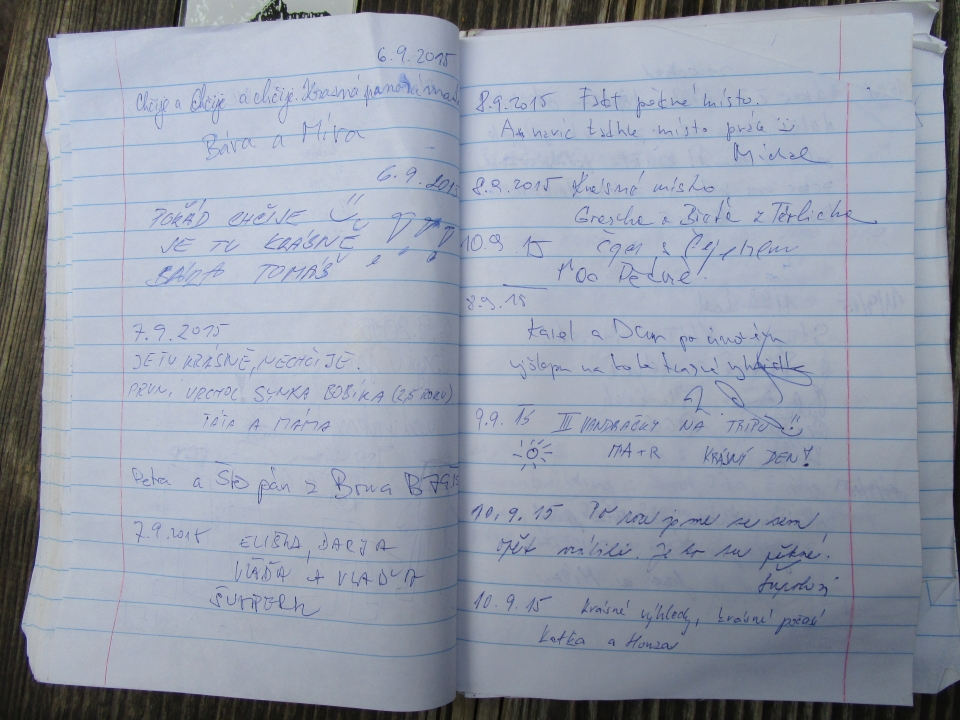 6.9.2015
Chčije a Chčije a chčije. Krásná panorama
Bára a Míra
6.9.2015
POŘÁD CHČIJE
JE TU KRÁSNĚ
BÁRA TOMÁŠ
7.9.2015
JE TU KRÁSNĚ, NECHČIJE.
PRVNÍ VRCHOL SYNKA BOBÍKA (2,5 ROKU)
TÁTA A MÁMA
Petra a Štěpán z Brna
7.9.2015 ELIŠKA, DARJA
VLAĎA A VLADKA
ŠUMPERK
8.9.2015 Fakt pěkné místo.
A navíc tohle místo
Michal
8.9.2015 Krásné místo
z Těrlicka
10.9 15
8.9.15
Karel a po
výšlapu na kole krásné
9.9.15 III VANDRAČKY NA TRIPU
MA+R KRÁSNÝ DEN!
10.9.15 Po roce jsme se sem
opět vrátili. Je to tu pěkné.
10.9.15 krásné výhledy, krásné počasí
Katka a Honza